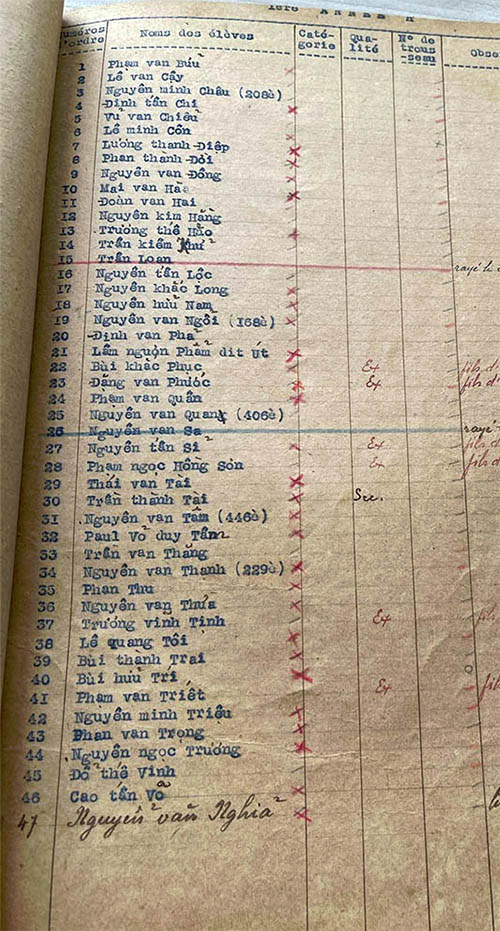 1ère ANNEE H
Numéros d'ordre Noms des élèves Caté-gorie Qua-lité N° de trous-seau Obse
1 Phạm van Bửu
2 Lê van Cậy
3 Nguyễn minh Châu (208è)
4 Định tấn Chi
5 Vũ van Chiêu
6 Lê minh Côn
7 Lương thanh Điệp
8 Phan thành Đôi
9 Nguyễn van Đồng
10 Mai van Hà
11 Đoàn van Hai
12 Nguyễn kim Hăng
13 Trương thế Hảo
14 Trần kiêm Khử
15 Trần Loan rayé
16 Nguyễn tấn Lộc
17 Nguyễn khắc Long
18 Nguyễn hữu Nam
19 Nguyễn van Ngôi (168è)
20 Định van Phà
21 Lâm nguơn Phẩm dit Út
22 Bùi khắc Phục Ex fils d'
23 Đặng van Phước Ex fils d'
24 Phạm van Quân
25 Nguyễn van Quang (406è)
26 Nguyễn van Sa rayé
27 Nguyễn tấn Sĩ Ex fils d
28 Phạm ngọc Hồng Sơn Ex fils d
29 Thái van Tài
30 Trần thành Tài Sec.
31 Nguyễn van Tâm (446è)
32 Paul Võ duy Tấn
33 Trần van Thăng
34 Nguyễn van Thanh (229è)
35 Phan Thu
36 Nguyễn van Thừa
37 Trương vinh Tinh Ex fils
38 Lê quang Tôi
39 Bùi thanh Trai
40 Bùi hữu Trí
41 Phạm van Triết Ex fil
42 Nguyễn minh Triệu
43 Phan van Trọng
44 Nguyễn ngọc Trương
45 Đổ thế Vinh
46 Cao tấn Võ
47 Nguyễn văn Nghĩa